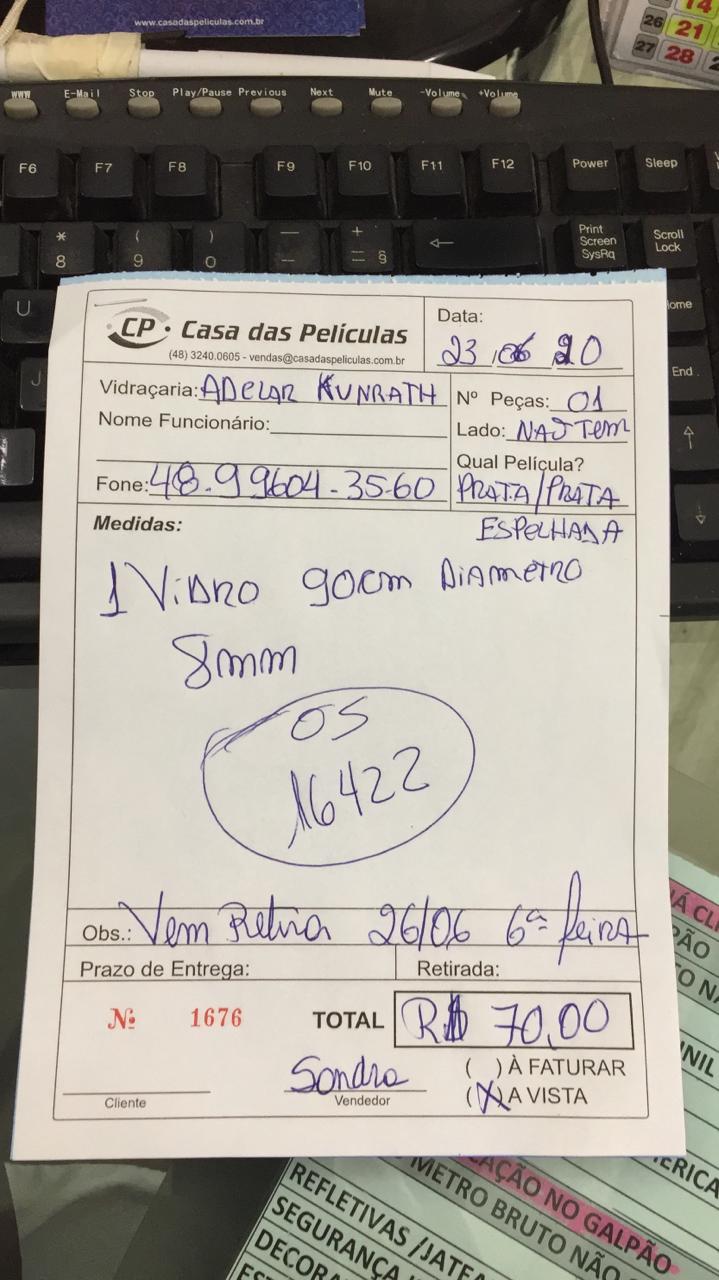 www.casadaspeliculas.com.br
14
26 21
27 28
WWW E-Mail Stop Play/Pause Previous Next Mute -Volume +Volume
F6 F7 F8 F9 F10 F11 F12 Power Sleep
* ( ) — +
8 9 0 = §
Print Screen SysRq
Scroll Lock
U
J
End
CP Casa das Películas
(48) 3240.0605 - vendas@casadaspeliculas.com.br
Data:
23 06 20
Vidraçaria: ADELAR KUNRATH
Nº Peças: 01
Nome Funcionário:
Lado: NAJ TEM
Qual Película?
Fone: 48.99604-3560
PRATA/PRATA
ESPELHADA
Medidas:
1 VIDRO 90cm DIAMETRO
8mm
OS
16422
Obs.: Vem Retira 26/06 6ª feira
Prazo de Entrega: Retirada:
Nº 1676 TOTAL R$ 70,00
Sandra
( ) À FATURAR
Cliente Vendedor (X) A VISTA
METRO BRUTO NÃO
CAÇÃO NO GALPÃO
REFLETIVAS /JATEA
SEGURANÇA
DECORA